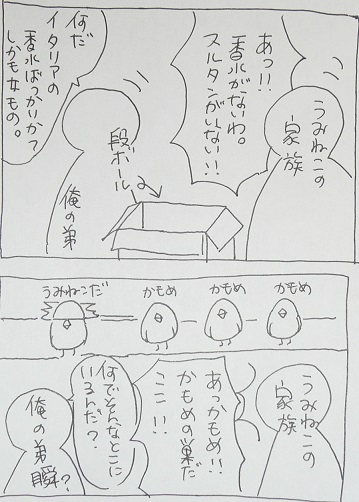 うみねこの
家族
あっ!!
香水がないわ。
スルタンがいない!!
段ボール
俺の弟
何だ
イタリアの
香水ばっかりか?
しかも女もの。
かもめ
かもめ
かもめ
うみねこだ
うみねこの
家族
あっかもめ!!
かもめの巣だ
ここ!!
何でそんなとこに
いるんだ?
俺の弟
瞬?